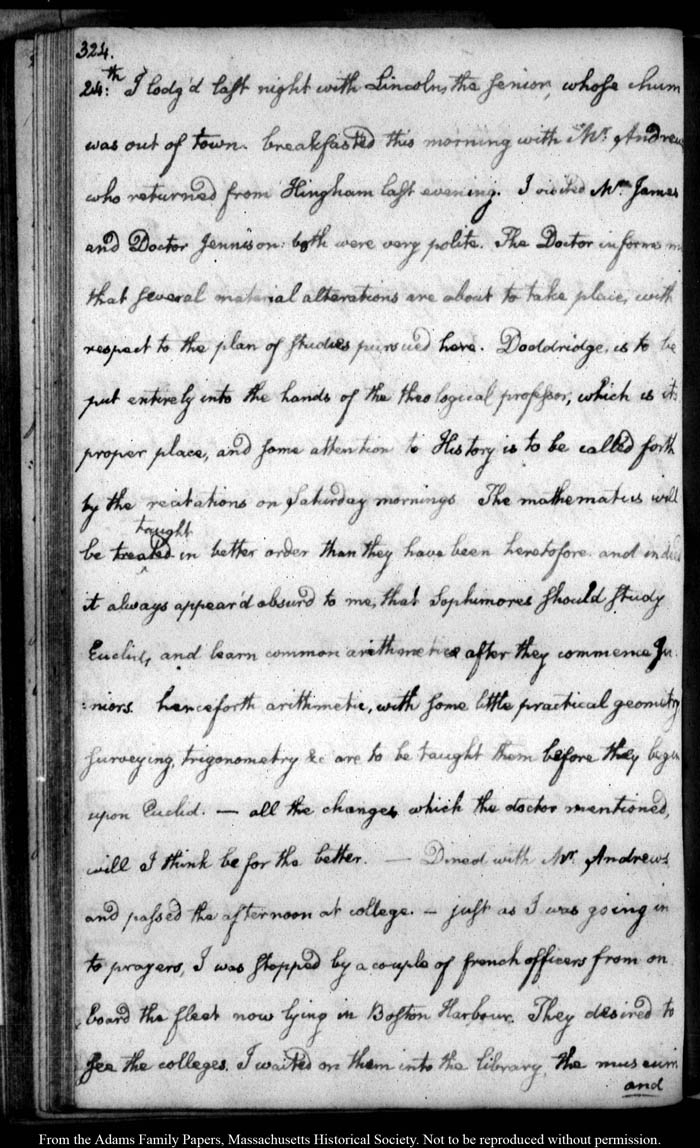 324.
24:th I lodg'd last night with Lincoln, the senior, whose chum
was out of town. breakfasted this morning with Mr. Andrews
who returned from Hingham last evening. I visited Mr. James
and Doctor Jennison: both were very polite. The Doctor informs m
that several material alterations are about to take place, with
respect to the plan of studies pursued here. Doddridge, is to be
put entirely into the hands of the theological professor, which is its
proper place, and some attention to History is to be called forth
by the recitations on Saturday mornings. The mathematics will
taught
be treated in better order than they have been heretofore. and indeed
it always appear'd absurd to me, that Sophimores should study
Euclid, and learn common arithmetic after they commence Ju
:niors. henceforth arithmetic, with some little practical geometry
surveying, trigonometry &c are to be taught them before they begin
upon Euclid. — all the changes which the doctor mentioned,
will I think be for the better. — Dined with Mr. Andrews
and passed the afternoon at college. — just as I was going in
to prayers, I was stopped by a couple of french officers from on
board the fleet now lying in Boston Harbour. They desired to
see the colleges. I waited on them into the library, the museum
and
From the Adams Family Papers, Massachusetts Historical Society. Not to be reproduced without permission.